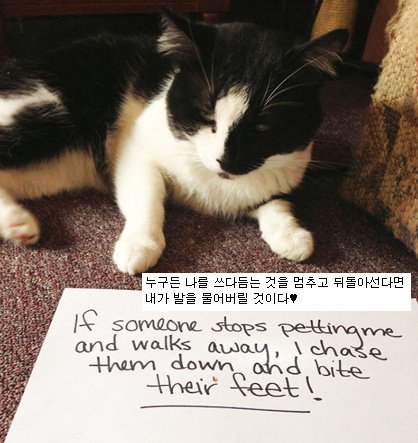 누구든 나를 쓰다듬는 것을 멈추고 뒤돌아선다면
내가 발을 물어버릴 것이다♥
If someone stops petting me
and walks away, I chase
them down and bite
their feet!